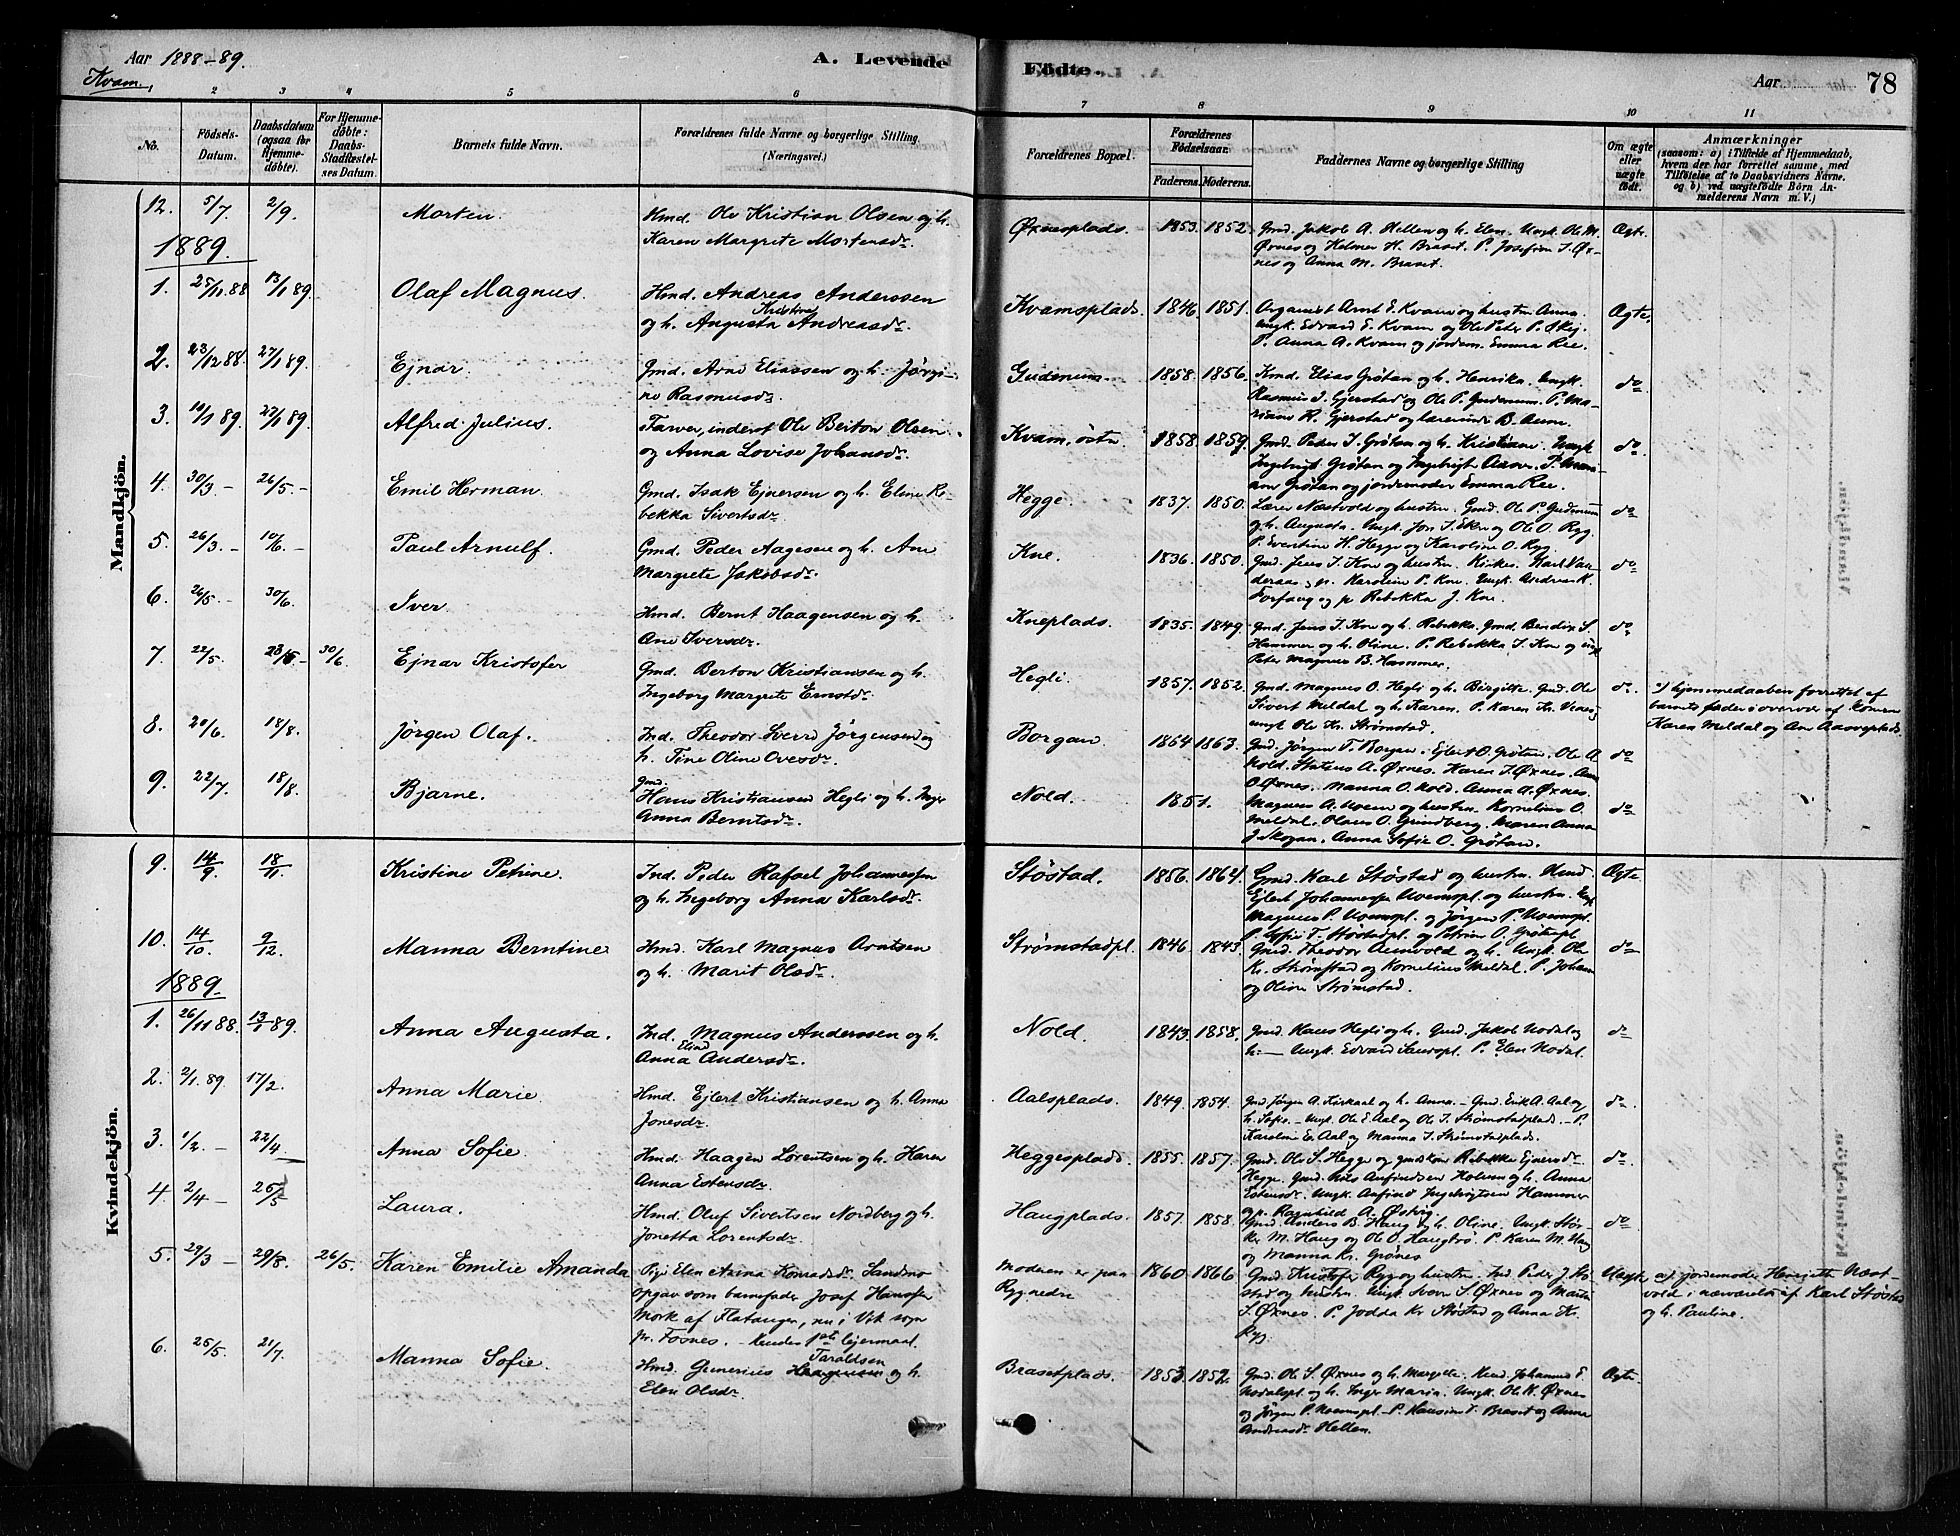 Aar 1888-89.
A. Levende Födte.
Aar
78
Kvam.
1 2 3 4 5 6 7 8 9 10 11
No.
Födsels-Datum.
Daabsdatum (ogsaa for Hjemmedøbte).
For Hjemmedøbte: Daabs-Stadfæstelses Datum.
Barnets fulde Navn.
Forældrenes fulde Navne og borgerlige Stilling
(Næringsvei.)
Forældrenes Bopæl.
Forældrenes Födselsaar.
Faderens. Moderens.
Faddernes Navne og borgerlige Stilling
Om ægte eller uægte födt.
Anmærkninger
(saasom: a) i Tilfælde af Hjemmedaab,
hvem der har forrettet samme, med
Tilföielse af to Daabsvidners Navne,
og b) ved uægtefödte Börn An-
melderens Navn m. V.)
Mandkjön.
12. 5/7 2/9 Morten. Hmd. Ole Kristian Olsen og h.
Karen Margrete Mortensdr.
Øxnesplads. 1853. 1852. Gmd. Jakob A. Hellen og h. Elen. Ungk. Ole M.
Øxnes og Helmer H. Braset. P. Josefine I. Øx-
nes og Anna M. Braset.
Ægte.
1889.
1. 25/11 88 13/1 89. Olaf Magnus. Hmd. Andreas Anderssen
og h. Augusta Kristine Andreasdr.
Kvamsplads. 1846. 1851. Organist Arnt E. Kvam og hustru Anna.
Ungk. Edvard E. Kvam og Ole Peter P. Skej.
P. Anna A. Kvam og jordem. Emma Ree.
Ægte.
2. 23/12 88. 27/1 89. Ejnar. Gmd. Arne Eliassen og h. Jørgi-
ne Rasmusdr.
Gudenum. 1858. 1856. Kmd. Elias Grøtan og h. Henrika. Ungk.
Rasmus I. Gjerstad og Ole P. Gudenum. P. Ma-
riane R. Gjerstad og lærerinde B. Aune.
do
3. 10/1 89. 27/1 89. Alfred Julius. Farver, inderst Ole Berton Olsen
og Anna Lovise Johansdr.
Kvam, østr. 1858. 1859. Gmd. Peder I. Grøtan og h. Kristiane. Ungk.
Ingebrigt Grøtan og Ingebrigt Aasve. P.
Grøtan og jordemoder Emma Ree.
do
4. 30/3 - 26/5 - Emil Herman. Gmd. Isak Ejnersen og h. Eline Re-
bekka Sivertsdr.
Hegge. 1837. 1850. Lærer Næstvold og hustru. Gmd. Ole P. Gudenum
og h. Augusta. Ungk. Jon I. Ekre og Ole O. Ryg.
P. Evertine H. Hegge og Karoline O. Ryg.
do
5. 26/3. - 10/6. Paul Arnulf. Gmd. Peder Aagesen og h. Ane
Margrete Jakobsdr.
Kne. 1836. 1850. Gmd. Jens I. Kne og hustru. Kirkes. Karl Van-
deraas, p. Karoline P. Kne. Ungk. Andreas K.
Forfang og p. Rebekka J. Kne.
do
6. 26/5. - 30/6. Iver. Hmd. Bernt Haagensen og h.
Ane Iversdr.
Kneplads. 1835. 1849. Gmd. Jens I. Kne og h. Rebekka. Gmd. Bendix S.
Hammer og h. Oline. P. Rebekka I. Kne og ungk
Peter Magnus B. Hammer.
do
7. 22/5. 23/5. - 30/6. Ejnar Kristofer Gmd. Berton Kristiansen og h.
Ingeborg Margrete Ernstdr.
Hegli. 1857. 1852. Gmd. Magnus O. Hegli og h. Birgitte. Gmd. Ole
Sivert Meldal og h. Karen. P. Karen Kr.
ungk Ole Kr. Strømstad.
do. a) hjemmedaaben forrettet af
barnets fader i overvær af konerne
Karen Meldal og Ane Aasveplads.
8. 20/6. 18/8. Jörgen Olaf. Ind. Theodor Sverre Jørgensen og
h. Tine Oline Ovesdr.
Borgan. 1864 1863. Gmd. Jörgen T. Borgan. Ejlert O. Grøtan. Ole A.
Nold. Statius A. Øxnes. Karen I. Øxnes.
O. Øxnes. Manna O. Nold. Anna A. Øxnes.
do
9. 22/7. 18/8. Bjarne. Gmd. Hans Kristiansen Hegli og h. Inger
Anna Berntsdr.
Nold. 1851. Magnus A. Moen og hustru. Kornelius O.
Meldal. Olaus O. Grundberg. Maren Anna
J. Skogan. Anna Sofie O. Grøtan.
do
Kvindekjön.
9. 14/9. 18/11. Kristine Petrine. Ind. Peder Rafael Johannessen
og h. Ingeborg Anna Karlsdr.
Støstad. 1856. 1864. Gmd. Karl Støstad og hustru. Hmd
Ejlert Johannessen Moenspl. og hustru. Ungk
Magnus P. Moenspl. og Jörgen P. Moenspl.
P. Sofie T. Støstadpl. og Petrine O. Grøtanpl.
Ægte.
10. 14/10. 9/12. Manna Berntine Hmd. Karl Magnus Arntsen
og h. Marit Olsdr.
Strømstadpl. 1846. 1843. Gmd. Theodor Aunvold og h. Ungk. Ole
Kr. Strømstad og Kornelius Meldal. P. Johan
og Oline Strømstad.
do
1889.
1. 26/11 88. 13/1 89. Anna Augusta. Ind. Magnus Anderssen og h.
Anna Elina Andersdr.
Nold. 1843. 1858. Gmd. Hans Hegli og h. Gmd. Jakob Nodal og
h. — Ungk. Edvard Saurspl. P. Elen Nodal.
do
2. 2/1. 89. 17/2. Anna Marie Hmd. Ejlert Kristiansen og h. Anna
Jonesdr.
Aalsplads. 1849. 1854. Gmd Jørgen A. Kirkaal og h. Anna. — Gmd. Erik A. Aal og
h. Sofie. — Ungk. Ole E. Aal og Ole I. Strømstadplads. — P.
Karoline E. Aal og Manna I. Strømstadplads.
do
3. 1/2. - 22/4 Anna Sofie Hmd. Haagen Lorentsen og h. Karen
Anna Estensdr.
Heggesplads. 1855. 1857. Gmd. Ole S. Hegge og gmdskone Rebekka Ejnersdr
Hegge. Gmd. Nils Anfindsen Holum og h. Anna
Estensdr. Ungk. Anfind Ingebrigtsen Hammer
og p. Ragnhild A. Østvig.
do.
4. 2/4 - 26/5 Laura. Hmd. Oluf Sivertsen Nordberg og h.
Jonetta Lorentsdr.
Haugplads. 1857. 1858. Gmd. Anders B. Haug og h. Oline. Ungk. Stör-
ker M. Haug og Ole O. Haugtrø. P. Karen M. Haug
og Manna Kr. Grønes
do
5. 29/3 — 29/8. 26/5. Karen Emilie Amanda Pige Elen Anna Konradsdr. Sandmo
opgav som barnefader Josef Hansen
Mork af Flatanger, nu i Vik sogn
pr. Fosnes. — Hendes 1ste lejermaal.
Moderen er paa
Rygnedre
1860 1866 Gmd. Kristofer Ryg og hustru. Ind Peder J. Stø-
stad og hustru. Ungk. Sverr S. Øxnes og Martin
S. Øxnes. P. Jodda Kr. Støstad og Anna Kr.
Ryg.
Uægte a) jordemoder Henriette Næst-
vold i nærværelse af Karl Støstad
og h. Pauline.
6. 25/5. 21/7. Manna Sofie. Hmd. Gunerius Taraldsen og h.
Elen Olsdr.
Brasetplads. 1853 1852. Gmd. Ole S. Øxnes og h. Margitte. Hmd. Johannes T.
Nodalspl. og h. Inger Maria. Ungk. Ole K. Øxnes
og Jørgen P. Moenspl. — P. Hansine T. Braset og Anna
Andreasdr Hellen.
Ægte.